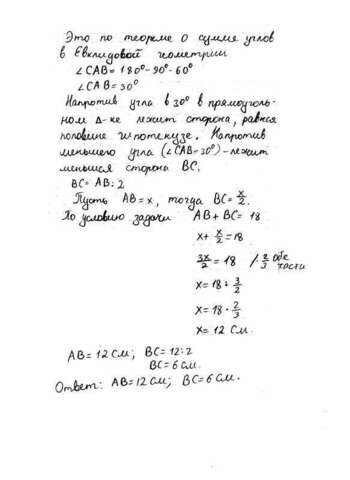 Это по теореме о сумме углов
в Евклидовой геометрии
∠CAB = 180°-90°-60°
∠CAB = 30°
Напротив угла в 30° в прямоуголь-
ном Δ-ке лежит сторона, равная
половине гипотенузе. Напротив
меньшего угла (∠CAB=30°) - лежит
меньшая сторона BC.
BC = AB : 2
Пусть AB = x, тогда BC = x/2.
По условию задачи AB + BC = 18
x + x/2 = 18
3x/2 = 18 /· 2/3 обе части
x = 18 : 3/2
x = 18 · 2/3
x = 12 см.
AB = 12 см; BC = 12 : 2
BC = 6 см.
Ответ: AB = 12 см; BC = 6 см.